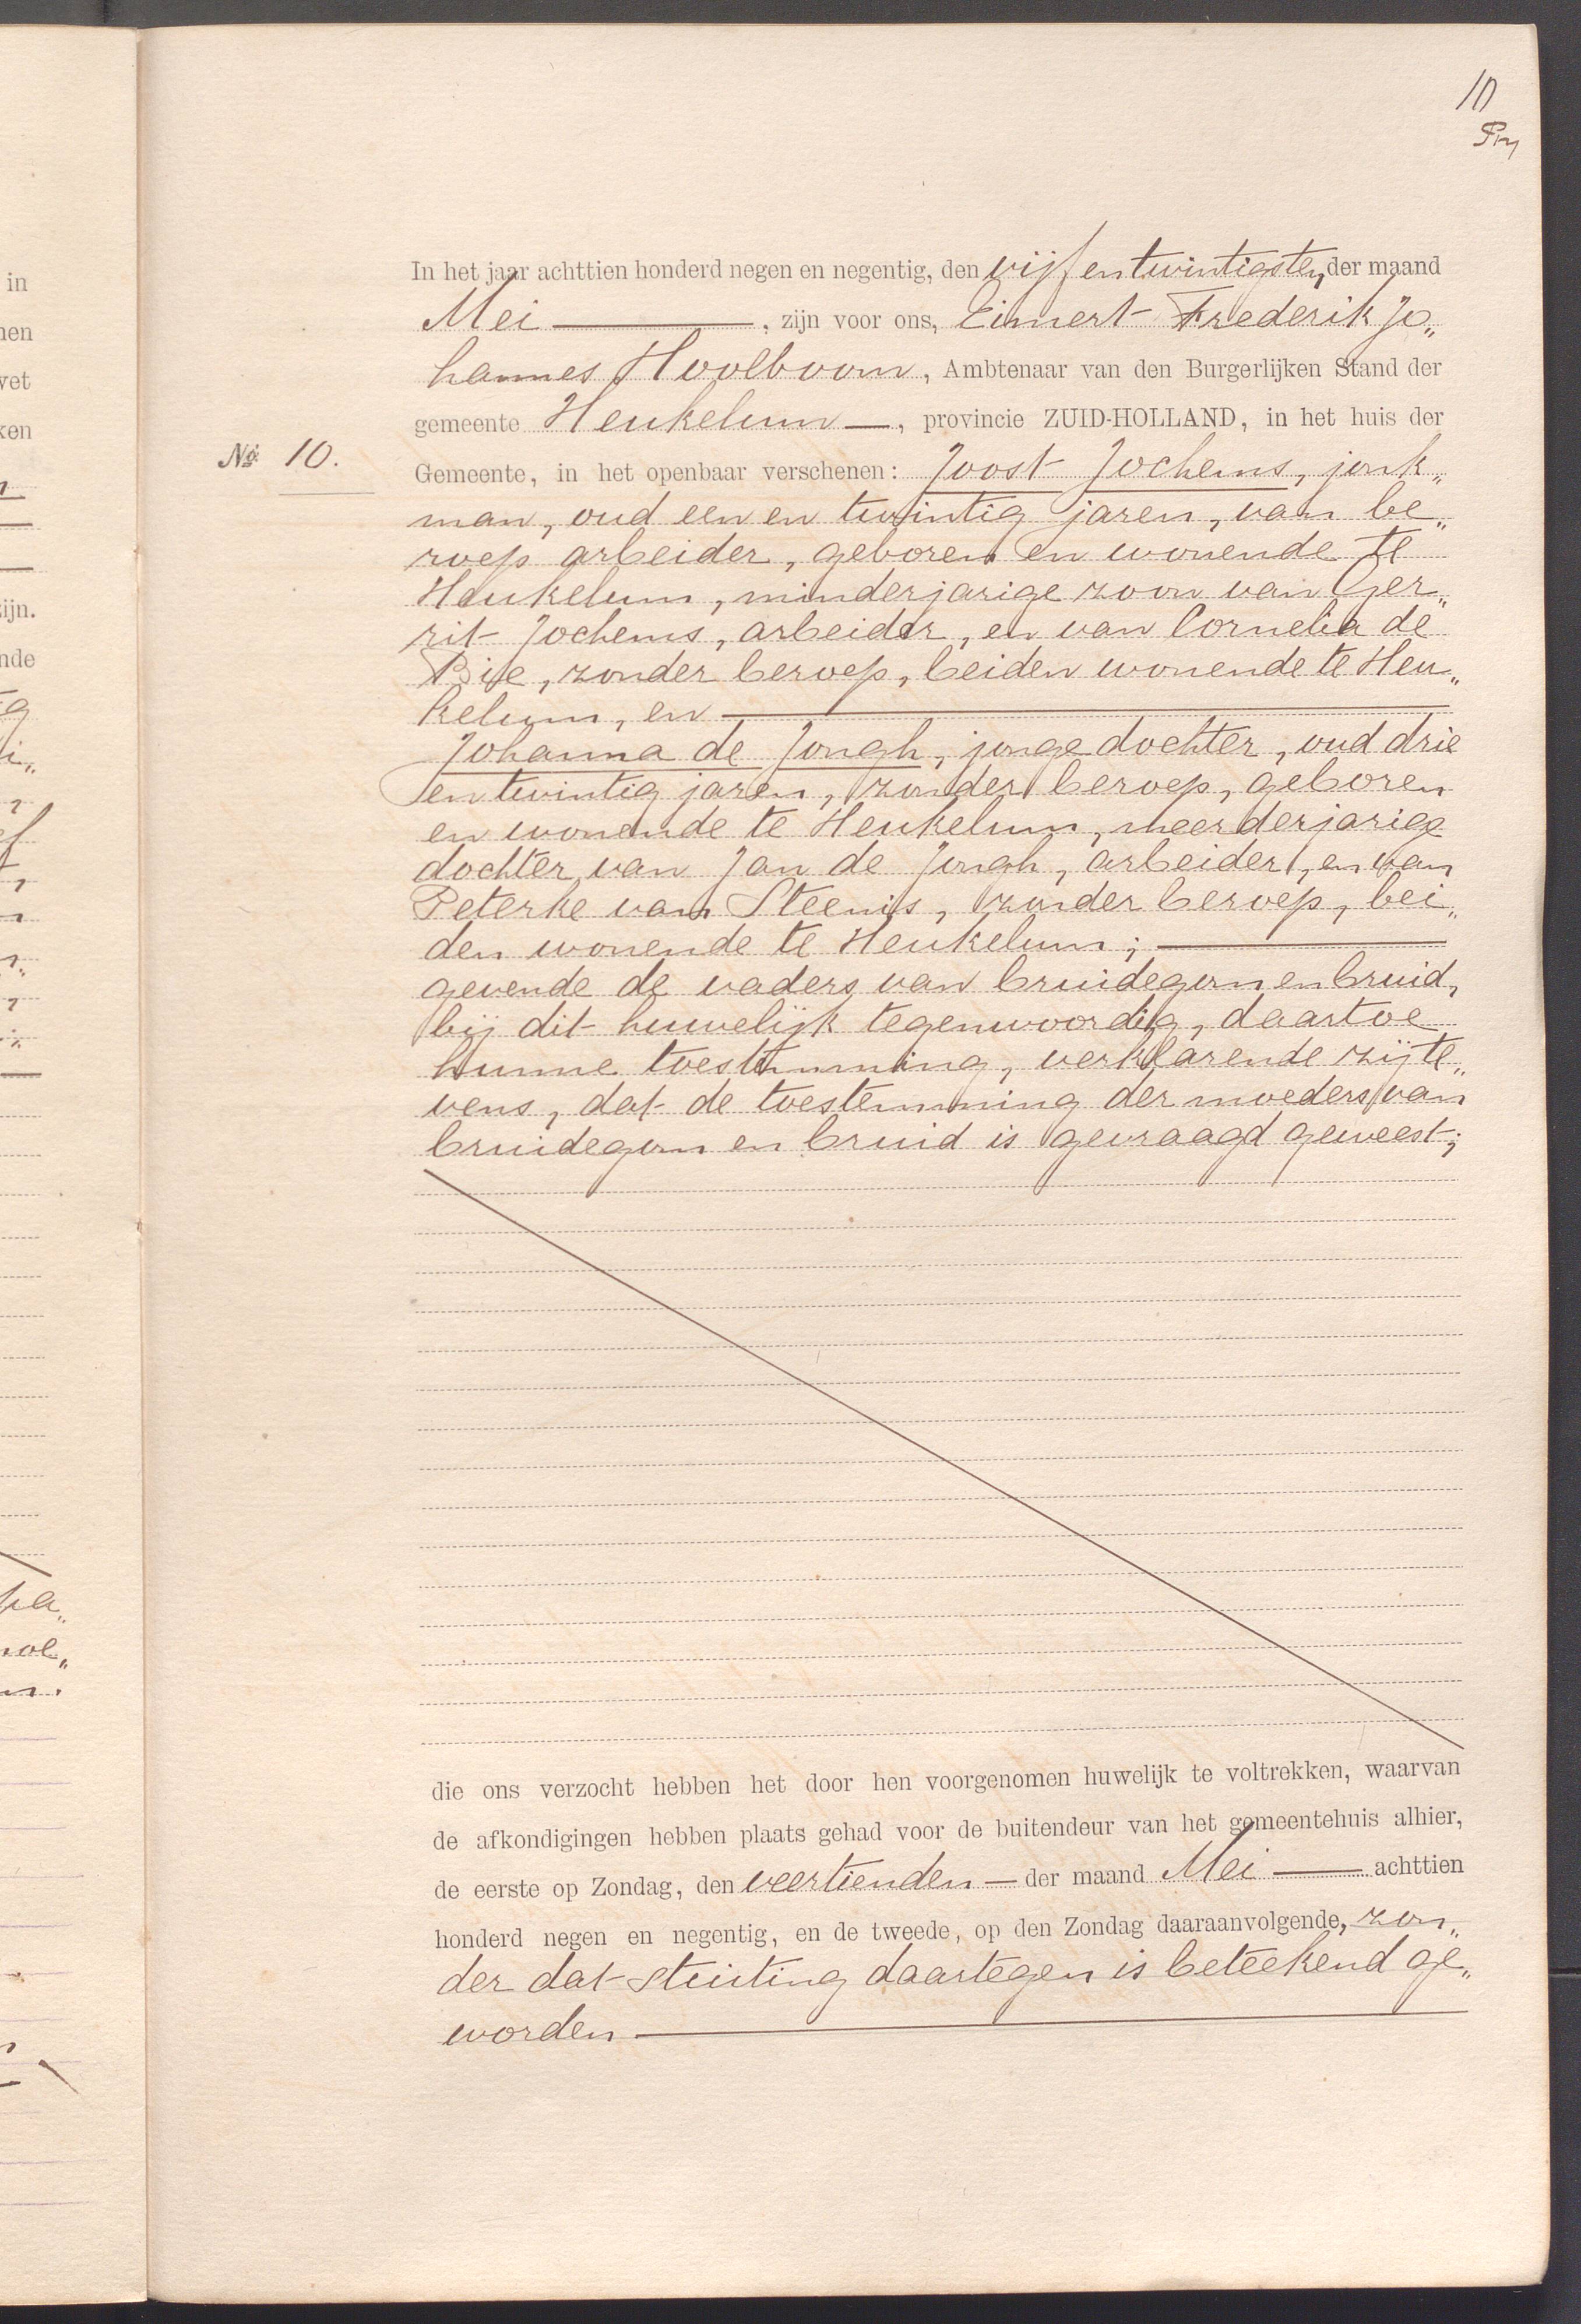 10
No. 10.
In het jaar achttien honderd negen en negentig, den vijf en twintigsten, der maand
Mei —, zijn voor ons, Eimert Frederik Jo„
hannes Hoolboom, Ambtenaar van den Burgerlijken Stand der
gemeente Heukelum —, provincie ZUID-HOLLAND, in het huis der
Gemeente, in het openbaar verschenen: Joost Jochems, jonk„
man, oud een en twintig jaren, van be„
roep arbeider, geboren en wonende te
Heukelum, minderjarige zoon van Ger„
rit Jochems, arbeider, en van Cornelia de
Bie, zonder beroep, beiden wonende te Heu„
kelum, en —
Johanna de Jongh, jonge dochter, oud drie
en twintig jaren, zonder beroep, geboren
en wonende te Heukelum, meerderjarige
dochter van Jan de Jongh, arbeider, en van
Peterke van Steenis, zonder beroep, bei„
den wonende te Heukelum; —
gevende de vaders van bruidegom en bruid,
bij dit huwelijk tegenwoordig, daartoe
hunne toestemming, verklarende zij te„
vens, dat de toestemming der moeders van
bruidegom en bruid is gevraagd geweest;
die ons verzocht hebben het door hen voorgenomen huwelijk te voltrekken, waarvan
de afkondigingen hebben plaats gehad voor de buitendeur van het gemeentehuis alhier,
de eerste op Zondag, den veertienden — der maand Mei — achttien
honderd negen en negentig, en de tweede, op den Zondag daaraanvolgende, zon„
der dat stuiting daartegen is beteekend ge„
worden —